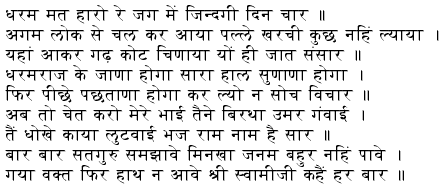 धरम मत हारो रे जग में जिन्दगी दिन चार ॥
अगम लोक से चल कर आया पल्ले खरची कुछ नहिं ल्याया ।
यहां आकर गढ़ कोट चिणाया यों ही जात संसार ॥
धरमराज के जाणा होगा सारा हाल सुणाणा होगा ।
फिर पीछे पछताणा होगा कर ल्यो न सोच विचार ॥
अब तो चेत करो मेरे भाई तैने बिरथा उमर गंवाई ।
तैं धोखे काया लुटवाई भज राम नाम है सार ॥
बार बार सतगुरु समझावे मिनखा जनम बहुर नहिं पावे ।
गया वक्त फिर हाथ न आवे श्री स्वामीजी कहैं हर बार ॥